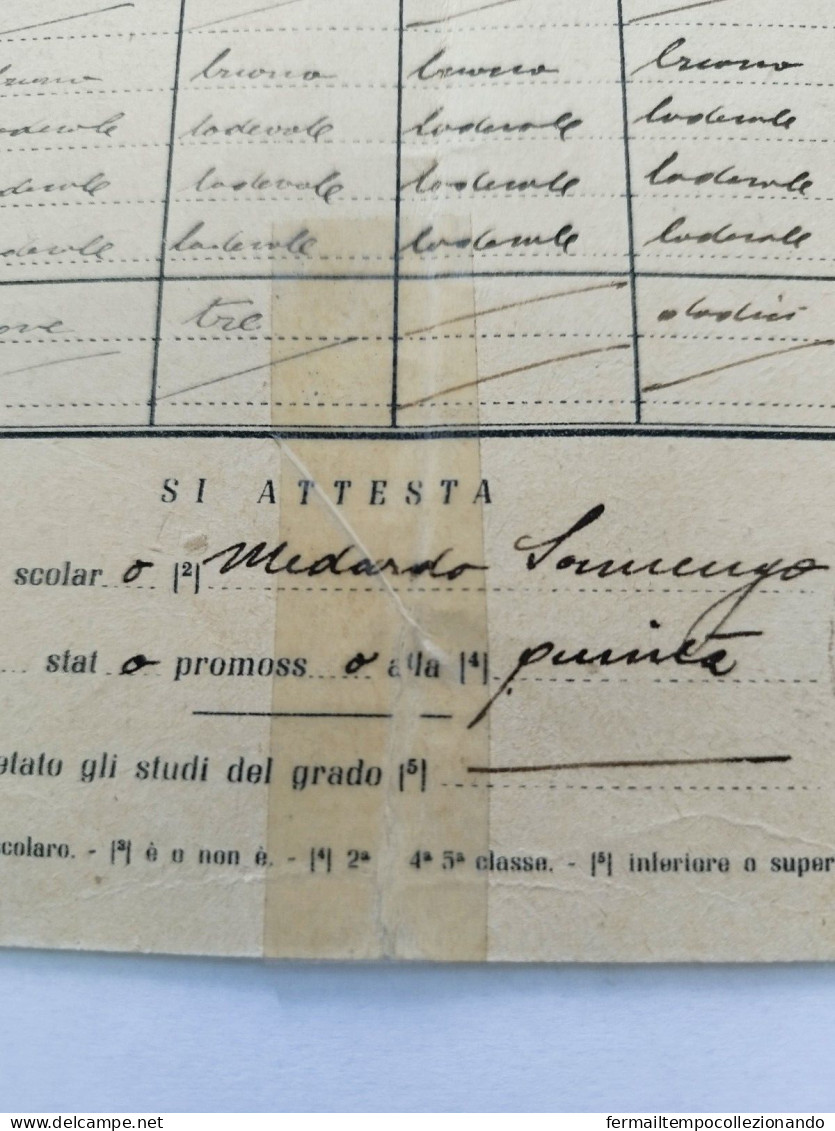 buono buono buono buono
lodevole lodevole lodevole lodevole
lodevole lodevole lodevole lodevole
lodevole lodevole lodevole lodevole
ove tre dodici
SI ATTESTA
scolar o |²| Medardo
stat o promoss o alla |⁴| quinta
etato gli studi del grado |⁵|
scolaro. - |³| è o non è. - |⁴| 2ª 4ª 5ª classe. - |⁵| inferiore o super
delcampe.net
fermailtempocollezionando